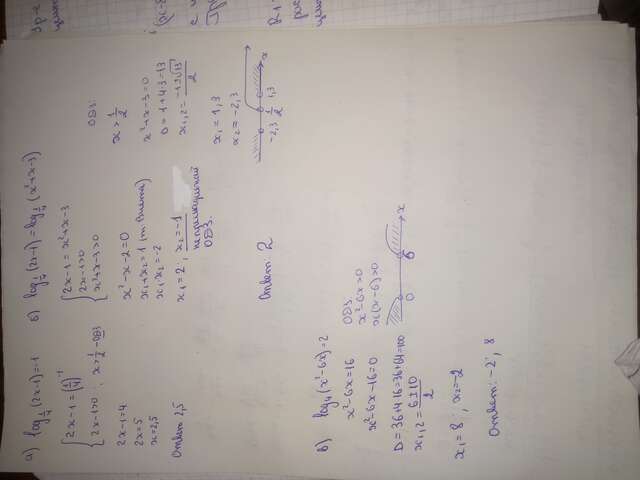 а) log 1/4 (2x-1)=-1
{ 2x-1=(1/4)^-1
2x-1>0; x>1/2 - ОДЗ
2x-1=4
2x=5
x=2,5
Ответ 2,5
б) log 1/4 (2x-1)=log 1/4 (x²+x-3)
{ 2x-1=x²+x-3
2x-1>0
x²+x-3>0
x²-x-2=0
x₁+x₂=1 (т. Виета)
x₁·x₂=-2
x₁=2; x₂=-1
не принадлежит
ОДЗ.
Ответ: 2
ОДЗ:
x>1/2
x²+x-3=0
D=1+4·3=13
x₁,₂=(-1±√13)/2
x₁=1,3
x₂=-2,3
-2,3 1/2 1,3 x
в) log₄(x²-6x)=2
x²-6x=16
x²-6x-16=0
D=36+4·16=36+64=100
x₁,₂=(6±10)/2
x₁=8; x₂=-2
Ответ: -2; 8
ОДЗ:
x²-6x>0
x(x-6)>0
0 6 x